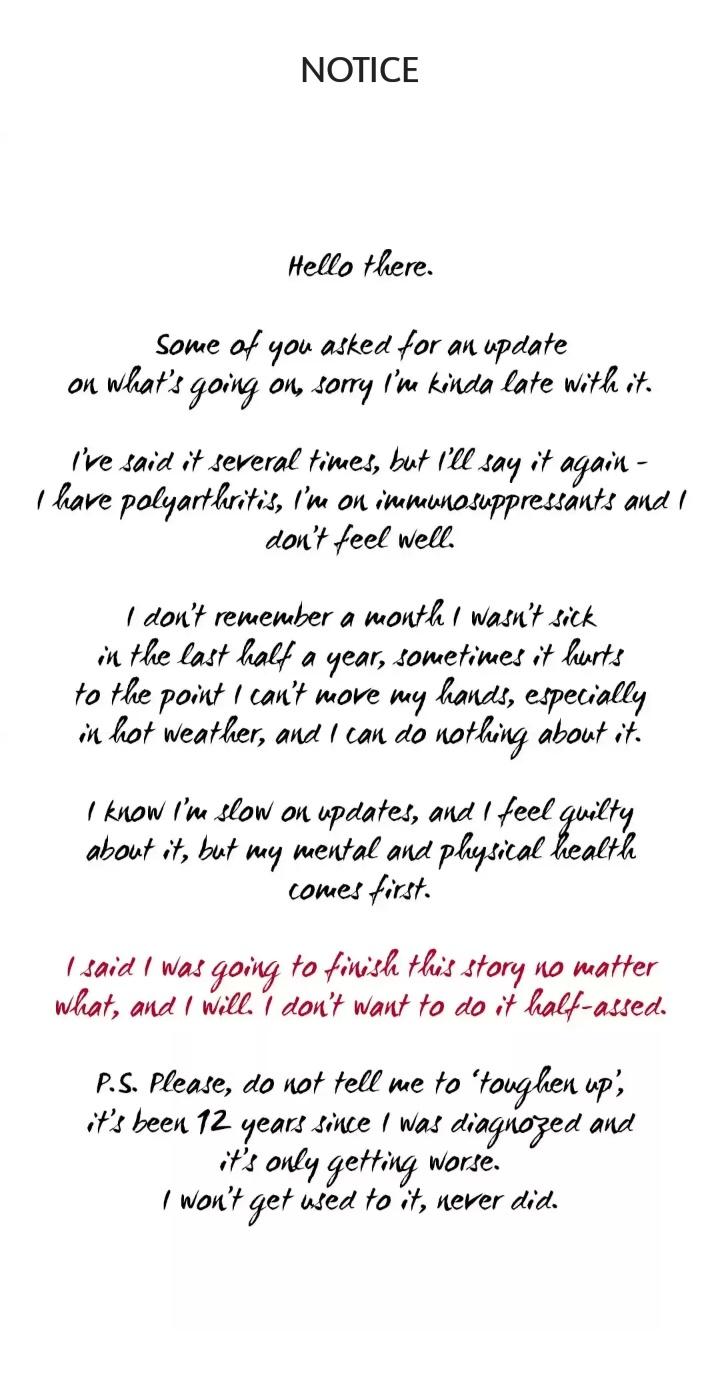 NOTICE
Hello there.
Some of you asked for an update
on what's going on, sorry I'm kinda late with it.
I've said it several times, but I'll say it again -
I have polyarthritis, I'm on immunosuppressants and I
don't feel well.
I don't remember a month I wasn't sick
in the last half a year, sometimes it hurts
to the point I can't move my hands, especially
in hot weather, and I can do nothing about it.
I know I'm slow on updates, and I feel guilty
about it, but my mental and physical health
comes first.
I said I was going to finish this story no matter
what, and I will. I don't want to do it half-assed.
P.S. Please, do not tell me to 'toughen up',
it's been 12 years since I was diagnozed and
it's only getting worse.
I won't get used to it, never did.